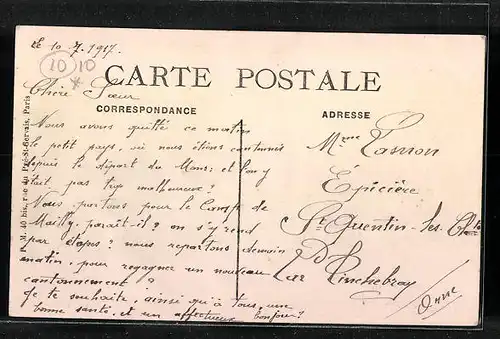 le 10.7.1917.
10 10
CARTE POSTALE
CORRESPONDANCE
ADRESSE
Chère Sœur
Nous avons quitté ce matin
le petit pays, où nous étions cantonnés
depuis le départ du Mans; et l'on y
était pas trop malheureux?
Nous partons pour le Camp de
Mailly, paraît-il? on s'y rend
par étapes? nous repartons demain
matin, pour regagner un nouveau
cantonnement?
Je te souhaite, ainsi qu'à tous, une
bonne santé, et un affectueux bonjour?
Mme
Épicière
St Quentin-les-
Par Tinchebray
Orne
A. M. 40 bis, rue du Pré-St-Gervais, Paris